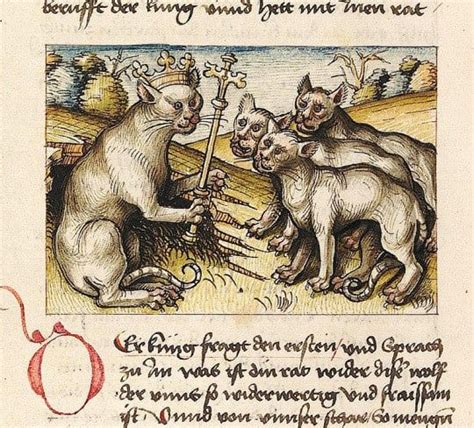 berufft der king vnnd hett mit Jnen rat
Der kúnig fragt den ersten / vnd Sprach
zu Jm was ist din rat wider dise wolf
der vnns so widerwertig vnd fraissam
ist Vnnd von vnnser schar So menigen